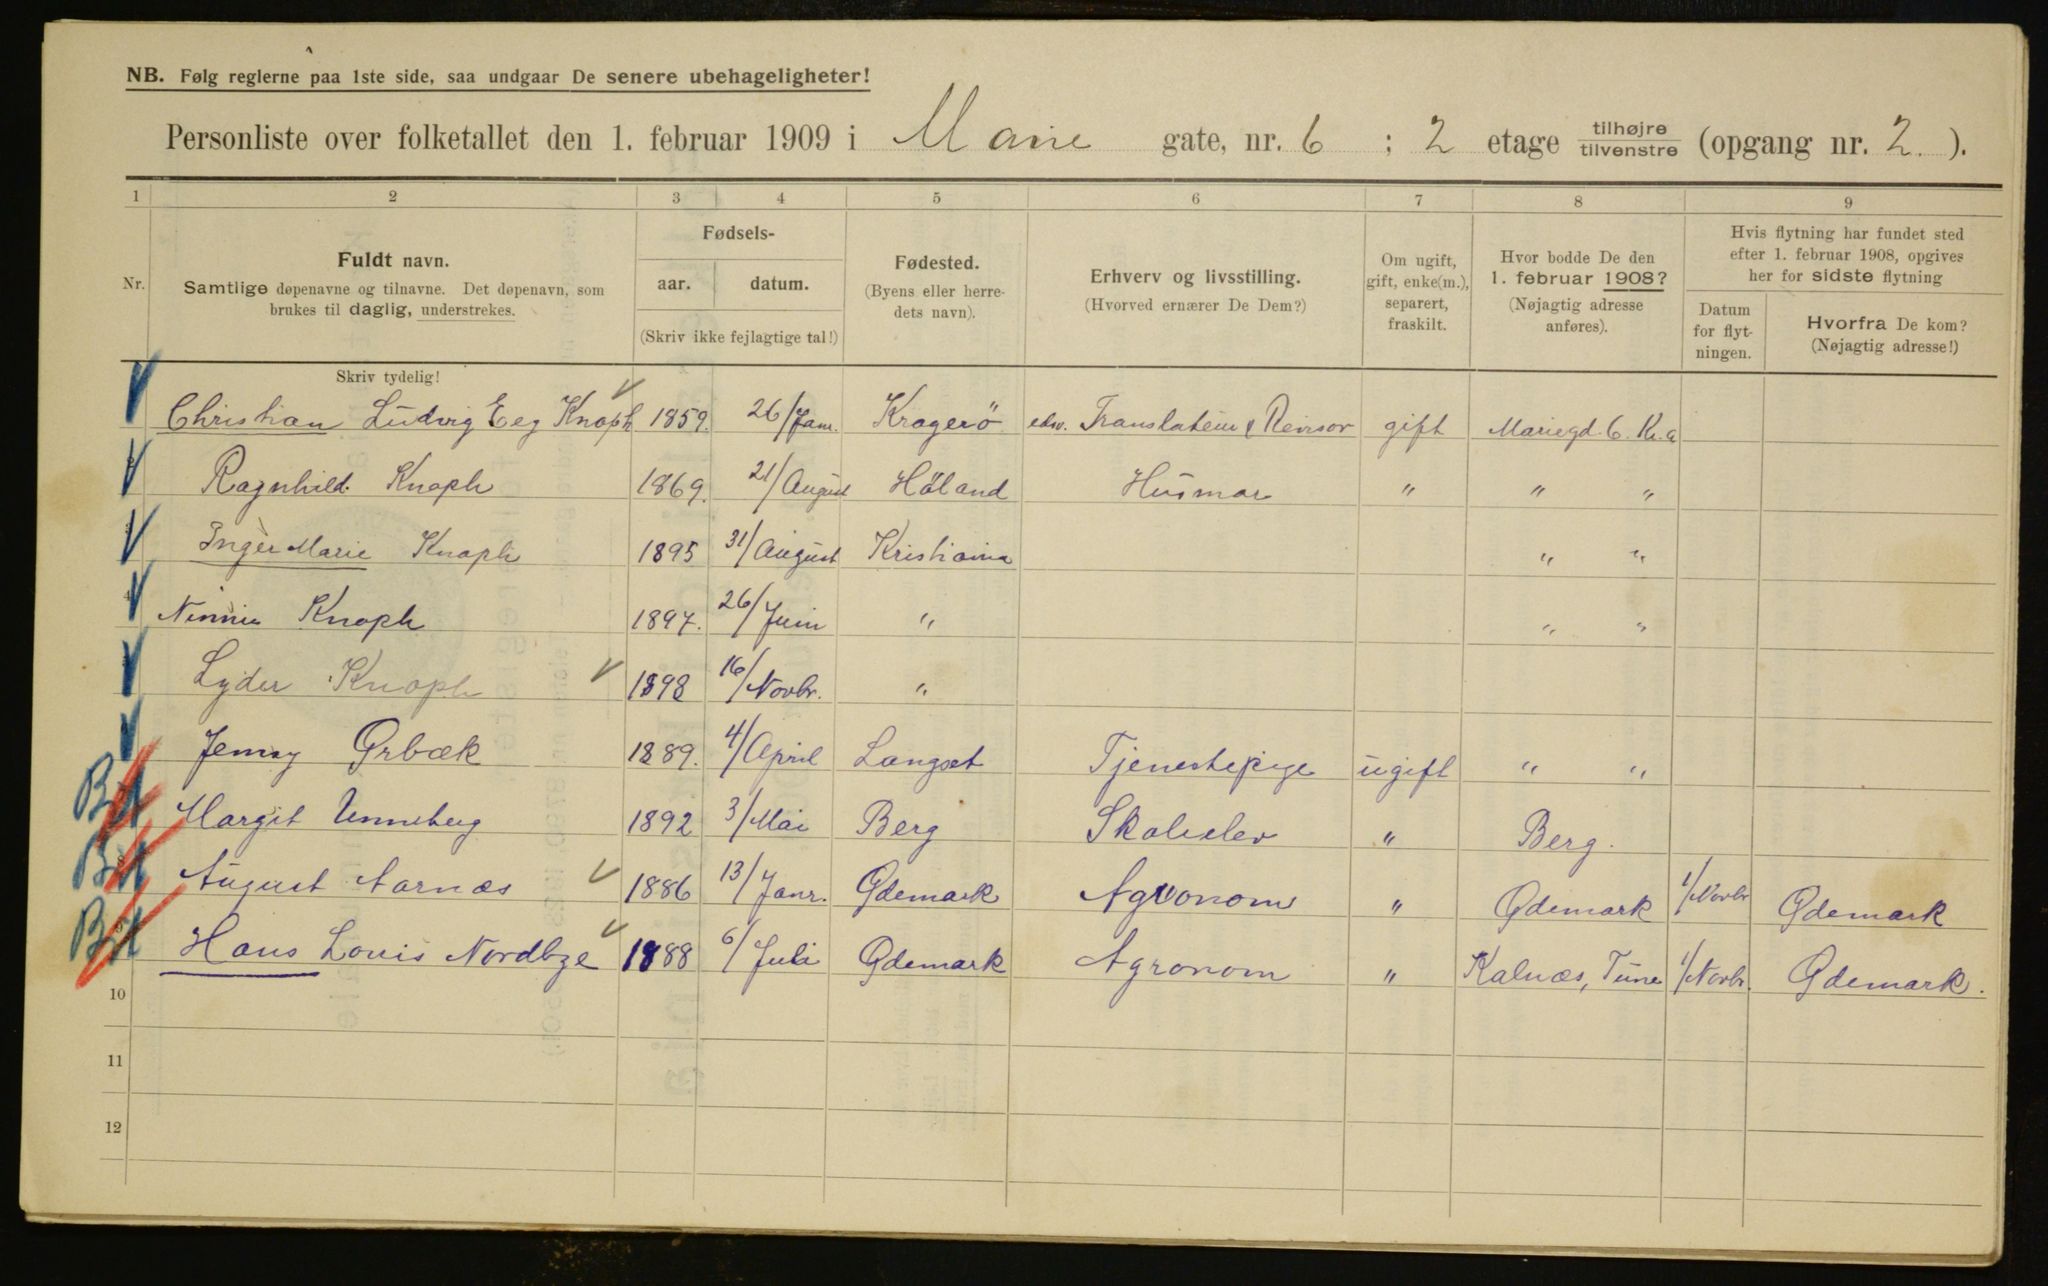 NB. Følg reglerne paa 1ste side, saa undgaar De senere ubehageligheter!
Personliste over folketallet den 1. februar 1909 i Marie gate, nr. 6 ; 2 etage tilhøjre tilvenstre (opgang nr. 2. ).
1 2 3 4 5 6 7 8 9
Nr.
Fuldt navn.
Samtlige døpenavne og tilnavne. Det døpenavn, som
brukes til daglig, understrekes.
Skriv tydelig!
Fødsels-
aar. datum.
(Skriv ikke fejlagtige tal!)
Fødested.
(Byens eller herre-
dets navn).
Erhverv og livsstilling.
(Hvorved ernærer De Dem?)
Om ugift,
gift, enke(m.),
separert,
fraskilt.
Hvor bodde De den
1. februar 1908?
(Nøjagtig adresse
anføres).
Hvis flytning har fundet sted
efter 1. februar 1908, opgives
her for sidste flytning
Datum
for flyt-
ningen.
Hvorfra De kom?
(Nøjagtig adresse!)
Christian Ludvig Eeg Knoph 1859. 26/Jan. Kragerö edsv. Translateur & Revisor gift Mariegd. 6. Kr.a
Ragnhild Knoph 1869. 21/August Höland Husmor " " "
Inger Marie Knoph 1895 31/August Kristiania " "
Ninnie Knoph 1897. 26/Juni " " "
Lyder Knoph 1898 16/Novbr. "
Jenny Ørbæk 1889. 4/April Langset Tjenestepige ugift " "
Margit Venneberg 1892 3/Mai Berg Skoleelev " Berg.
August Aarnæs 1886 13/Janr. Ødemark Agronom " Ødemark 1/Novbr Ødemark
Hans Louis Nordbye 1888 6/Juli Ødemark Agronom " Kalnæs, Tune 1/Novbr. Ødemark.
10
11
12